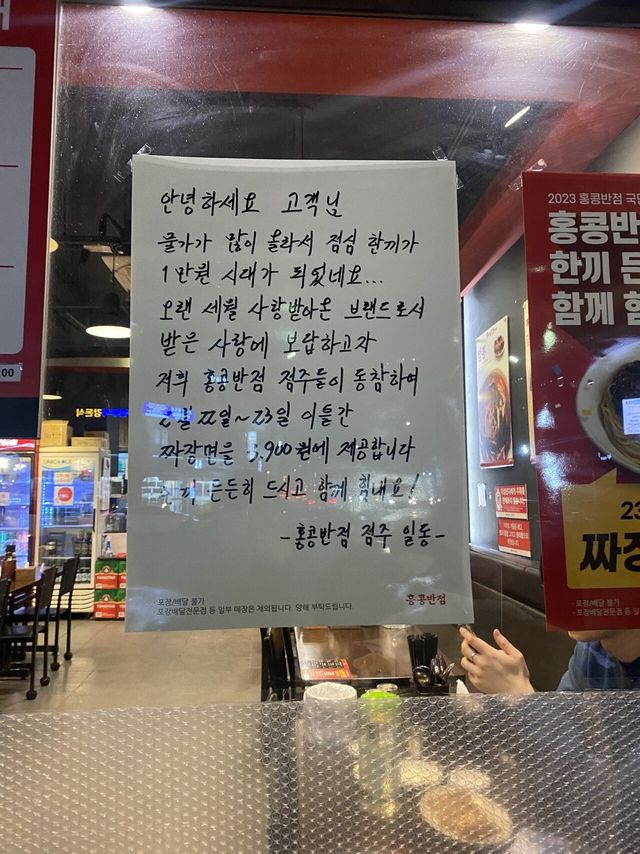 안녕하세요 고객님
물가가 많이 올라서 점심 한끼가
1만원 시대가 되었네요...
오랜 세월 사랑받아온 브랜드로서
받은 사랑에 보답하고자
저희 홍콩반점 점주들이 동참하여
22일~23일 이틀간
짜장면을 3,900원에 제공합니다
든든히 드시고 함께 힘내요!
-홍콩반점 점주 일동-
· 포장/배달 불가
· 포장배달전문점 등 일부 매장은 제외됩니다. 양해 부탁드립니다.
홍콩반점
2023 홍콩반점
홍콩반
한끼 든
함께 힘
23
짜장
· 포장/배달 불가
· 포장배달전문점 등 일
00
UNICHILE